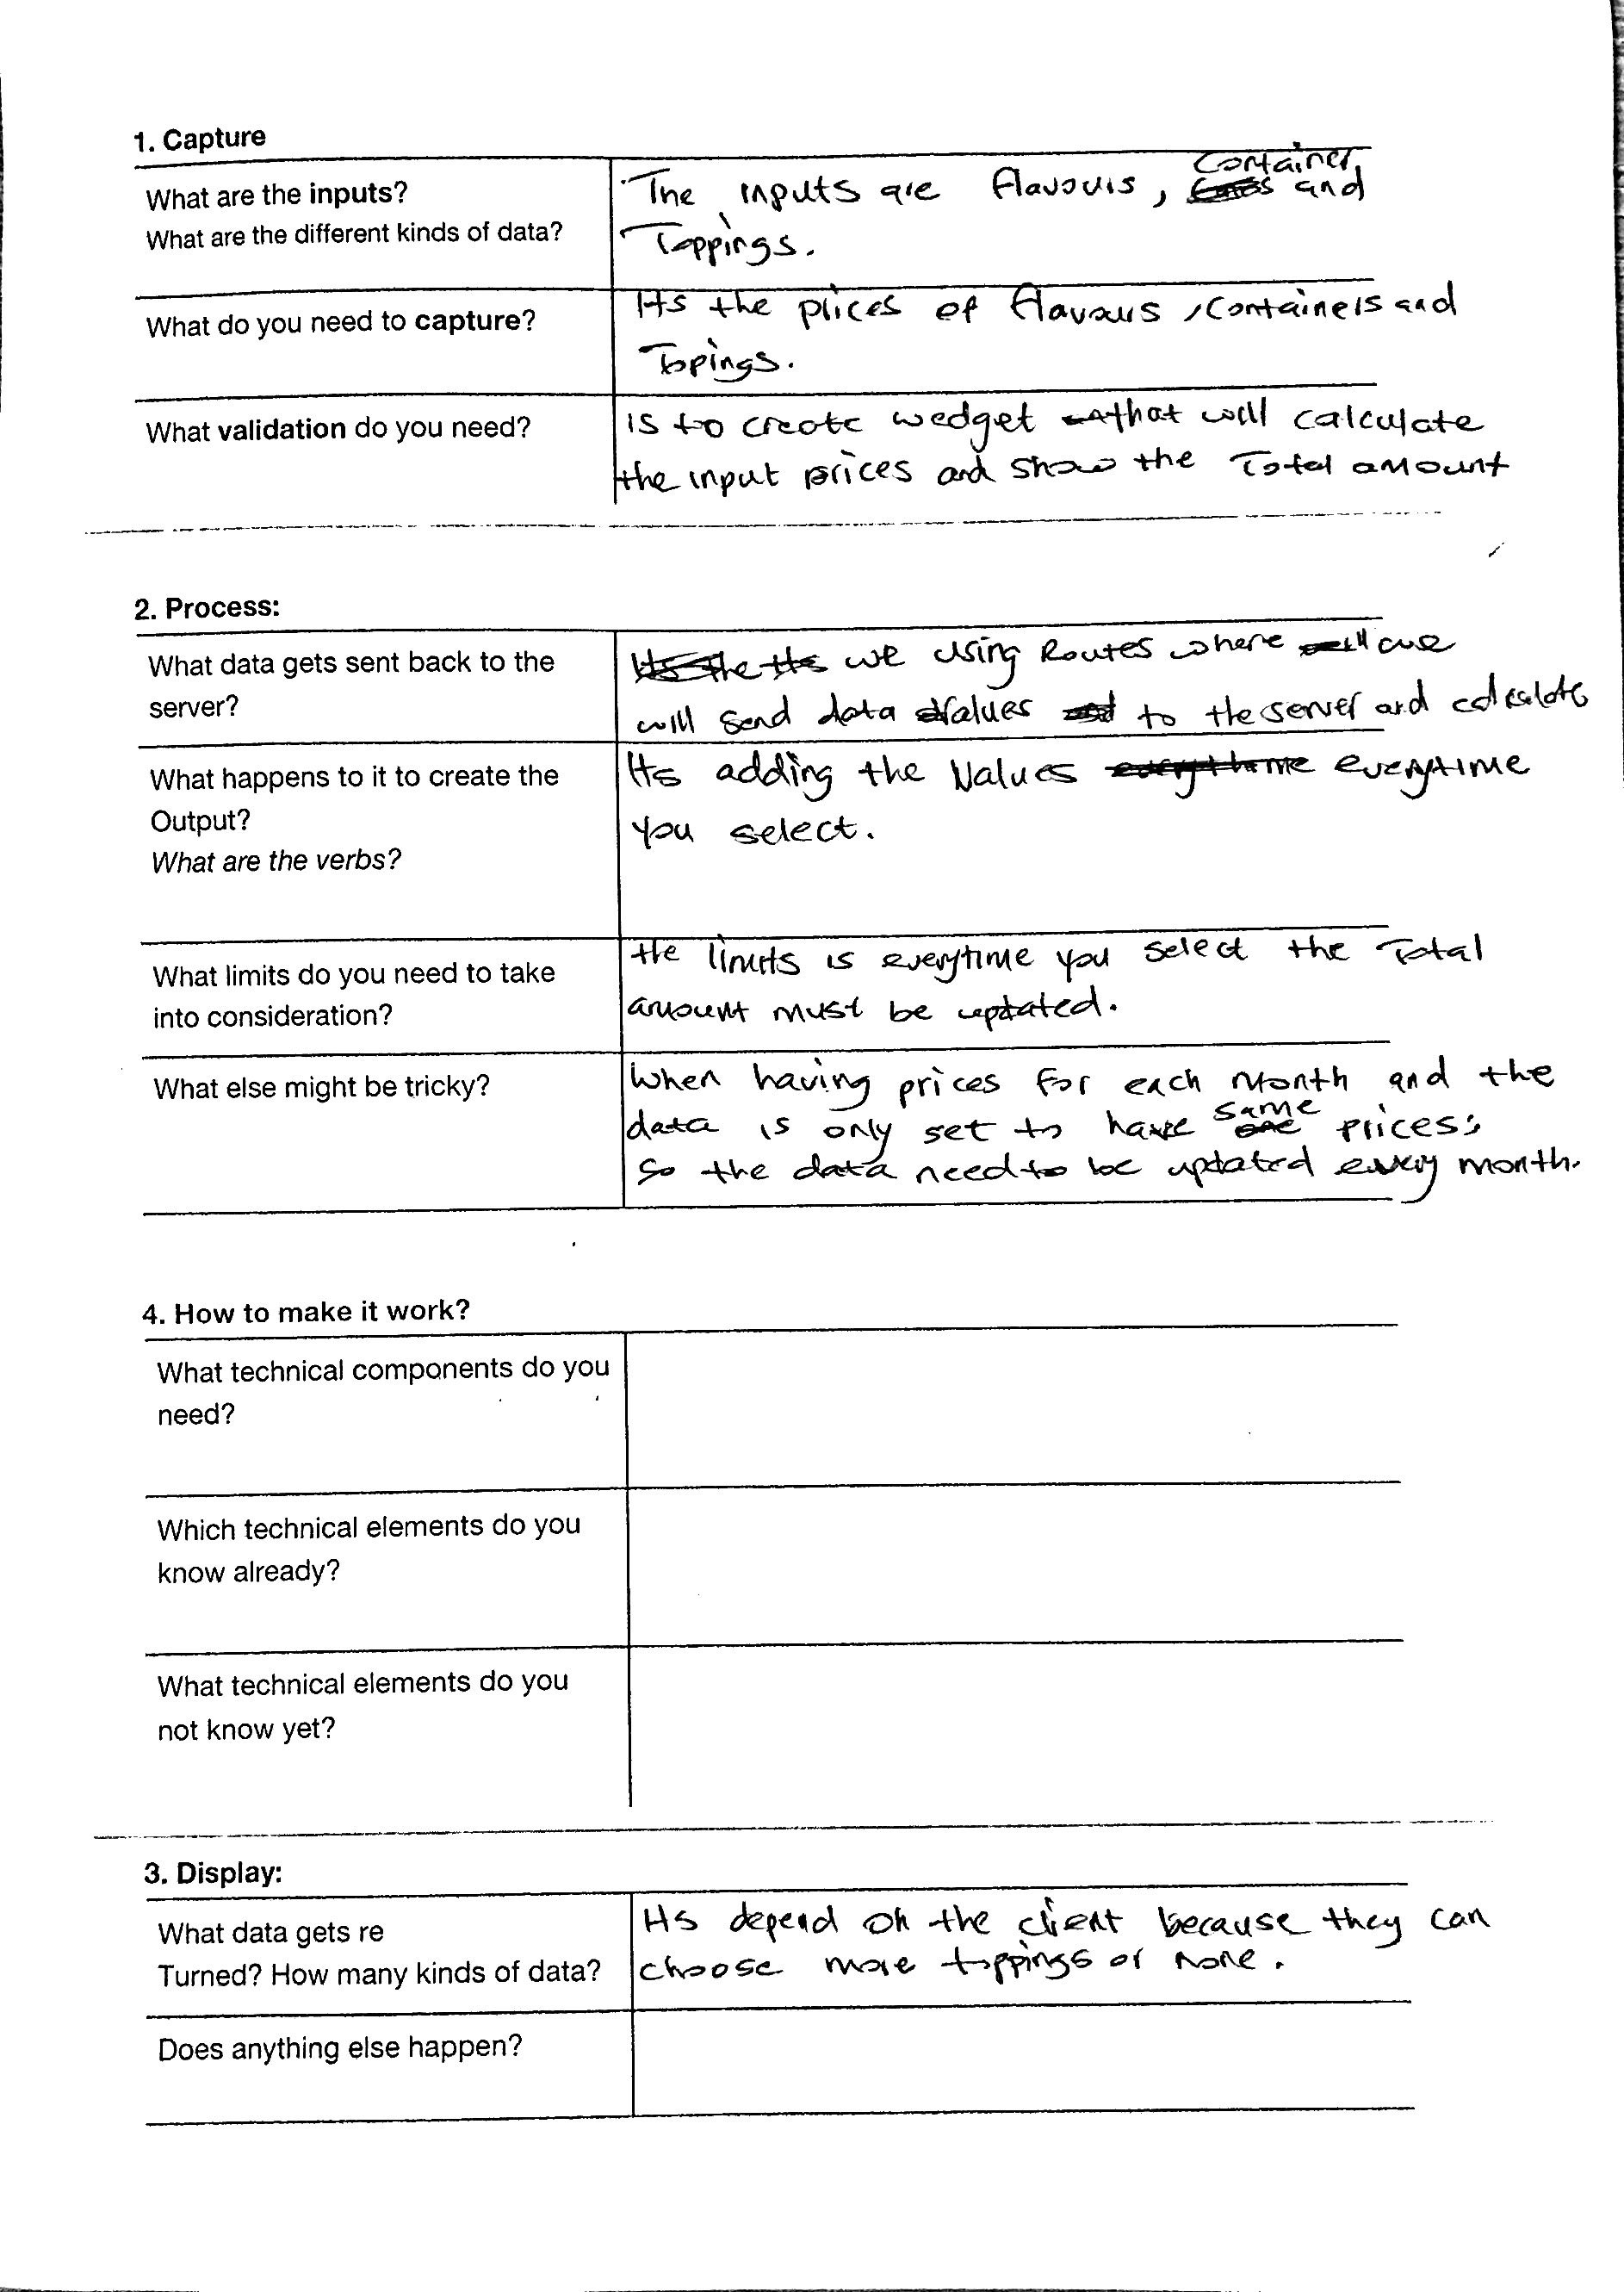 1. Capture
What are the inputs?
What are the different kinds of data?
The inputs are flavours, Container, and
Toppings.
What do you need to capture?
Its the prices of flavours, Containers and
Topings.
What validation do you need?
is to create wedget that will calculate
the input prices and show the Total amount
2. Process:
What data gets sent back to the
server?
we using Routes where
will send data values to the server and calculate
What happens to it to create the
Output?
What are the verbs?
Its adding the Values everytime
you select.
What limits do you need to take
into consideration?
the limits is everytime you select the Total
amount must be updated.
What else might be tricky?
When having prices for each Month and the
data is only set to have same prices;
So the data need to be updated every month.
4. How to make it work?
What technical components do you
need?
Which technical elements do you
know already?
What technical elements do you
not know yet?
3. Display:
What data gets re
Turned? How many kinds of data?
Its depend on the client because they can
choose more toppings or none.
Does anything else happen?